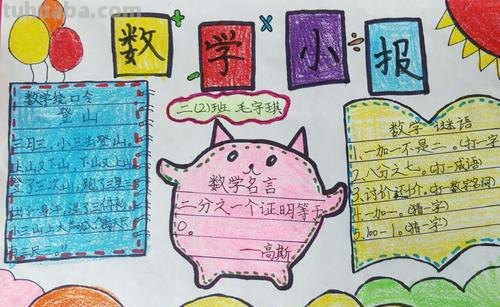 tuhuaba.com
数学小报
二(2)班 毛宇琪
数学绕口令
登山
三月三，小三去登山。
上山又下山，下山又上山
登了三次山，跑了三里三
出了一身汗，湿了三件衫
小三山上大声喊：“离天只
有三尺三。”
数学名言
二分之一个证明等于
0。
——高斯
数学 谜语
1.一加一不是二。(打一字
2.八分之七。(打一成语)
3.讨价还价。(打一数学名词)
4.一加一。(猜一字)
5.100-1。(猜一字)